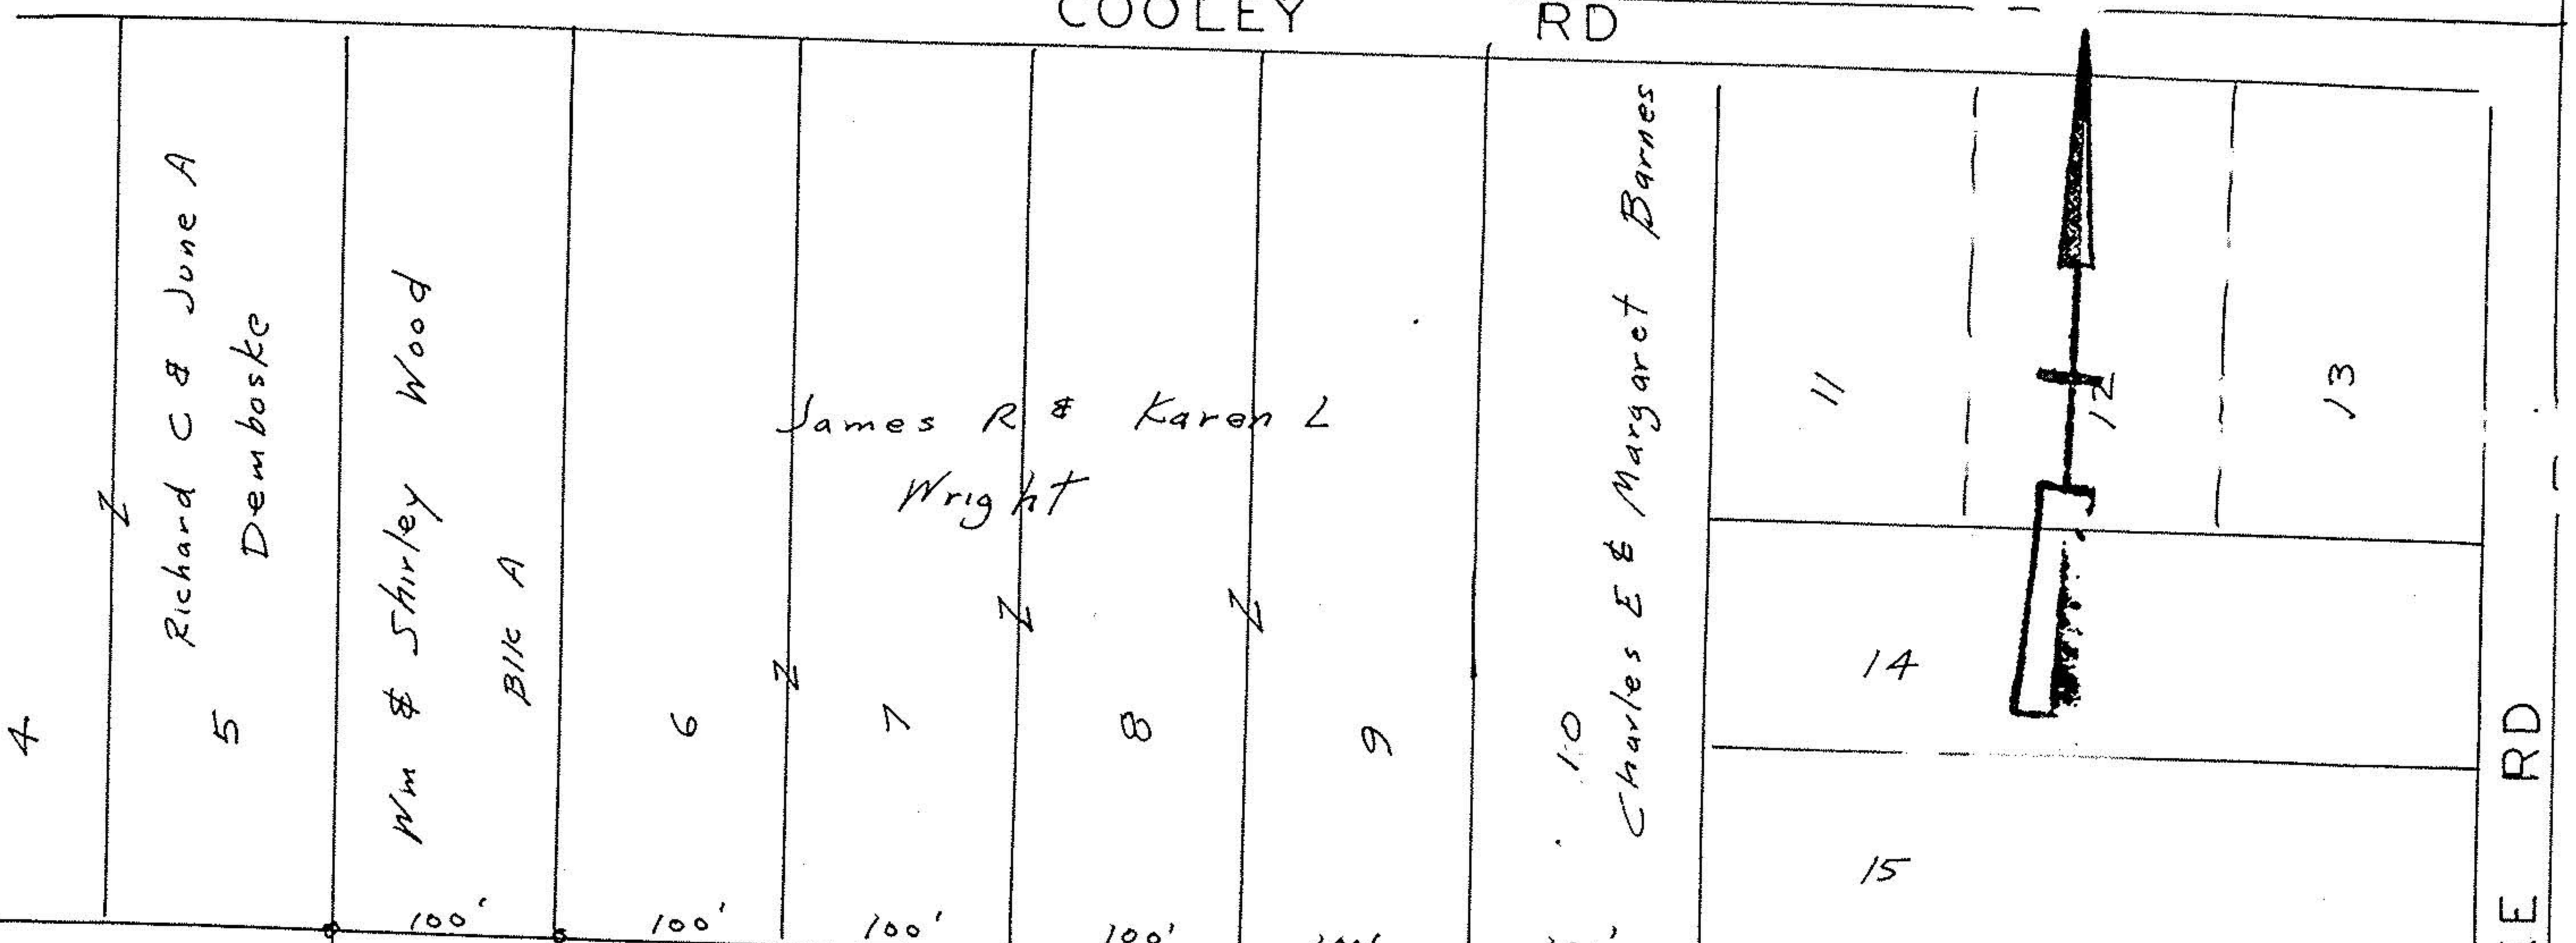 COOLEY RD
4
Richard C & June A
Demboske
5
Wm & Shirley Wood
Blk A
6
James R & Karen L
Wright
7
8
9
10
Charles E & Margaret Barnes
11
12
13
14
15
RD
100'
100'
100'
100'